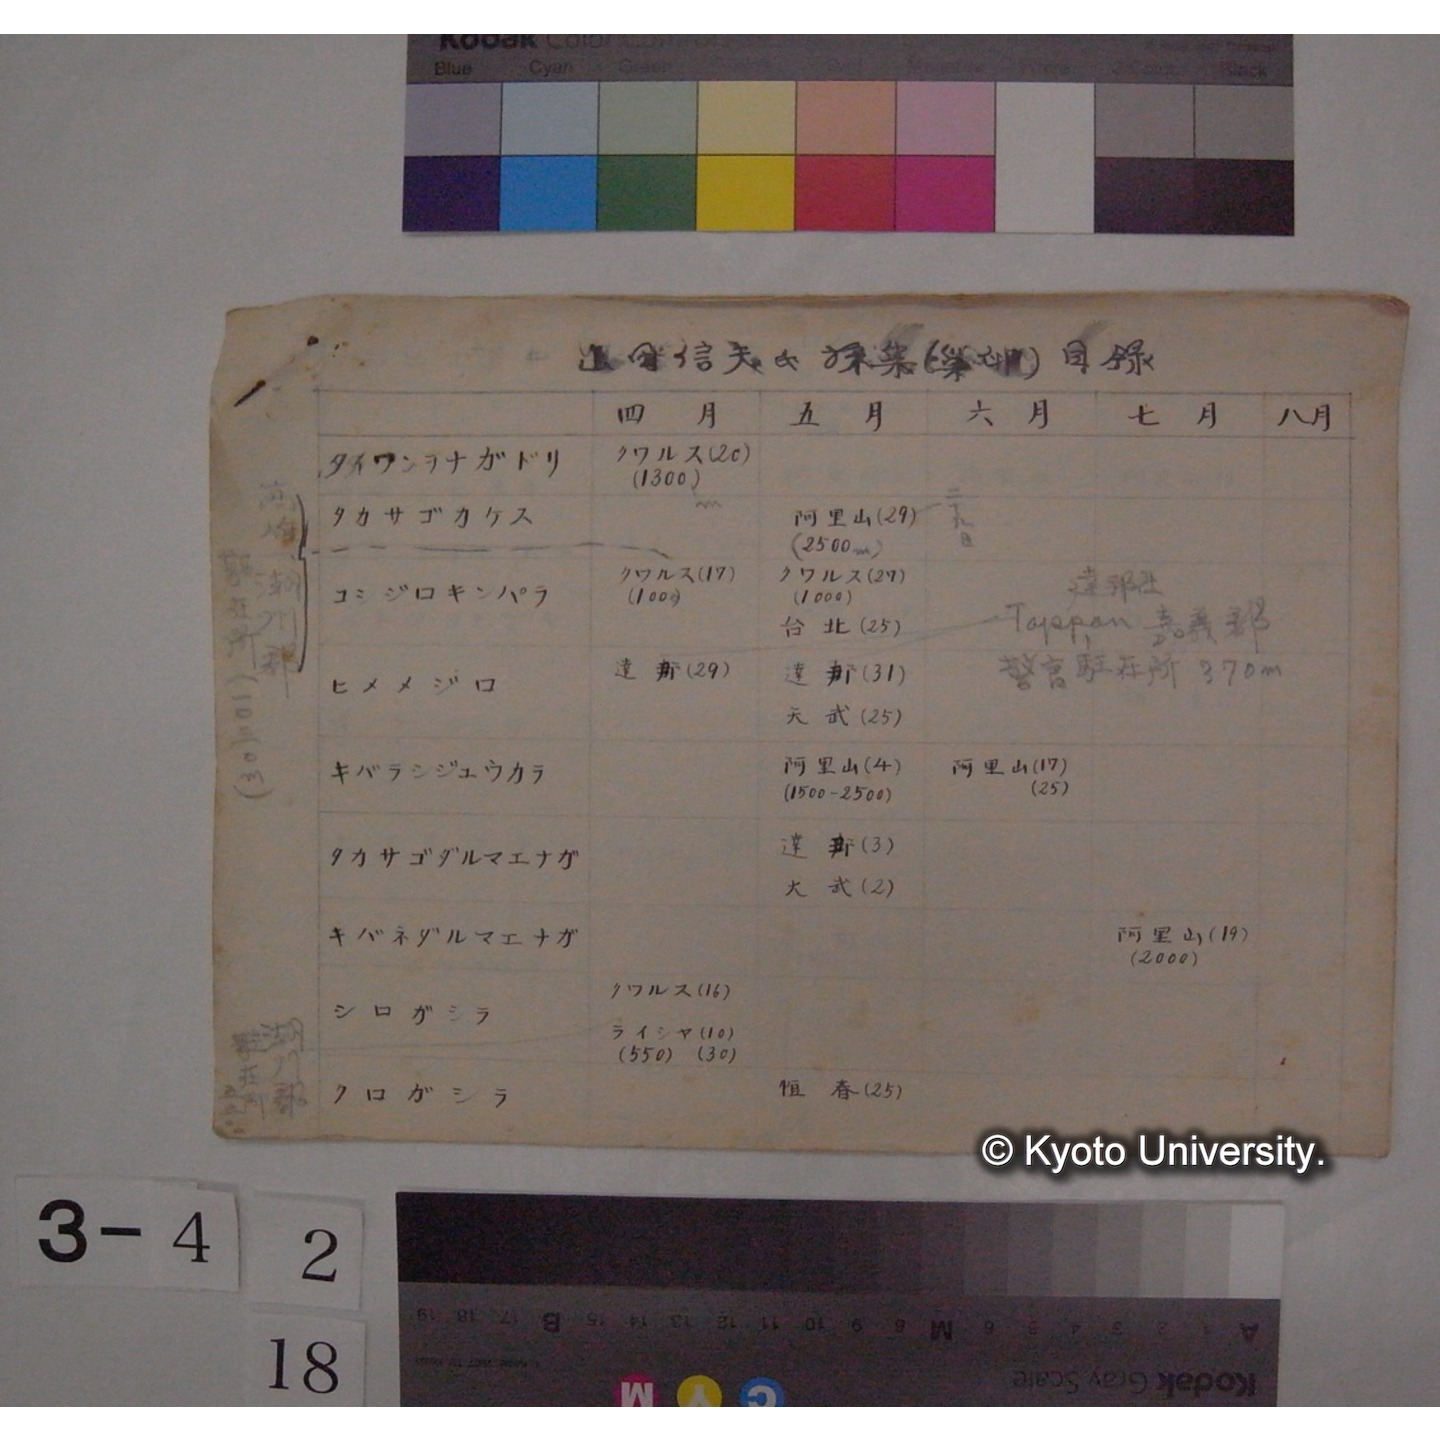 Kodak Color Control
Blue Cyan Green Black
信夫氏 採集(巣卵)目録
四月 五月 六月 七月 八月
タイワンオナガドリ クワルス(20)
(1300)
m
タカサゴカケス 阿里山(29) 二十九日
(2500m)
コシジロキンパラ クワルス(17) クワルス(27)
(1000) (1000)
台北(25)
達邦社
Tappan 嘉義郡
警官駐在所 970m
ヒメメジロ 達邦(29) 達邦(31)
大武(25)
キバラシジュウカラ 阿里山(4) 阿里山(17)
(1500-2500) (25)
タカサゴダルマエナガ 達邦(3)
大武(2)
キバネダルマエナガ 阿里山(19)
(2000)
シロガシラ クワルス(16)
ライシャ(10)
(550) (30)
クロガシラ 恒春(25)
高雄
潮州郡
駐在所(1030)
潮州郡
駐在所
© Kyoto University.
3-4 2
18
A 1 2 3 4 5 6 M 8 9 10 11 12 13 14 15 B 17 18 19
Kodak Gray Scale
C Y M